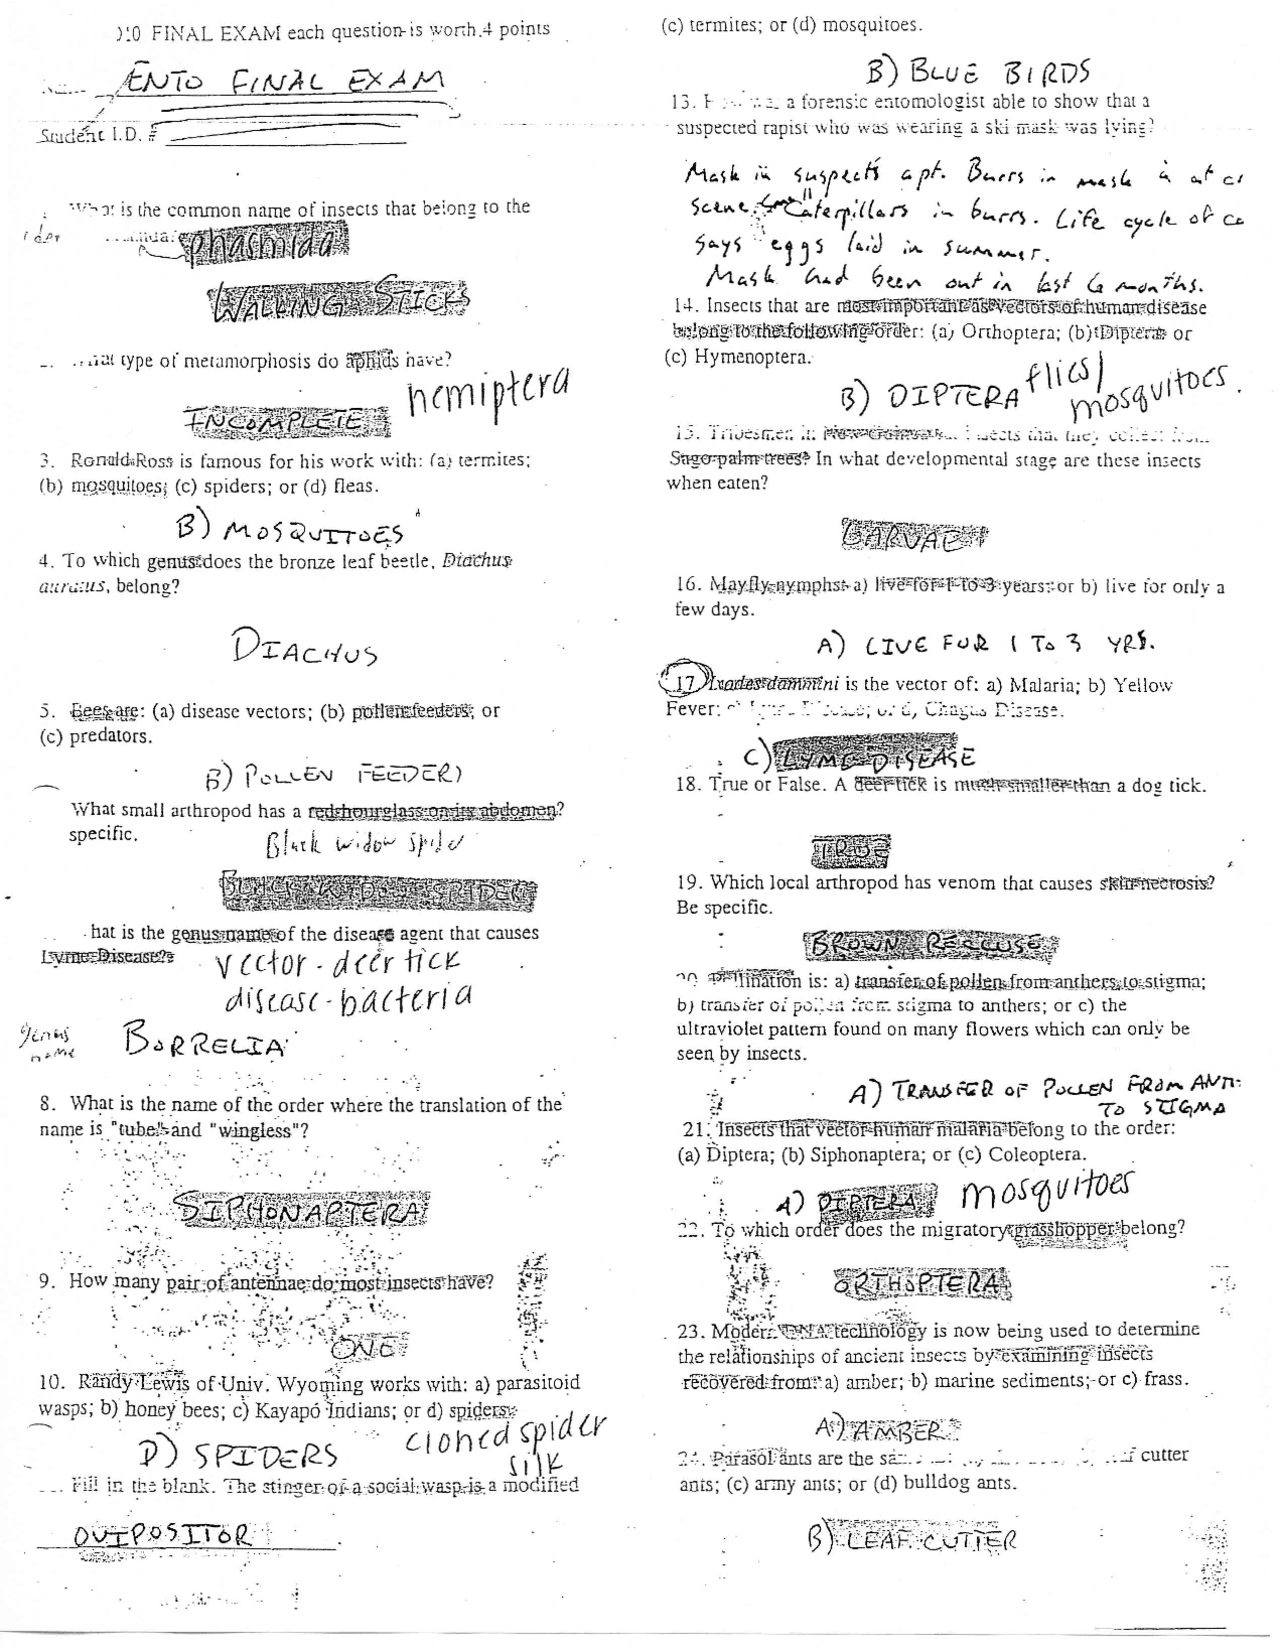 FINAL EXAM each question is worth 4 points
ENTO FINAL EXAM
Student I.D. #
is the common name of insects that belong to the
phasmida
WALKING STICKS
type of metamorphosis do aphids have?
hemiptera
INCOMPLETE
3. Ronald Ross is famous for his work with: (a) termites;
(b) mosquitoes; (c) spiders; or (d) fleas.
B) MOSQUITOES
4. To which genus does the bronze leaf beetle, Diachus
auratus, belong?
DIACHUS
5. Bees are: (a) disease vectors; (b) pollen feeders; or
(c) predators.
B) POLLEN FEEDER)
What small arthropod has a red hourglass on its abdomen?
specific.
Black widow spider
BLACK WIDOW SPIDER
hat is the genus name of the disease agent that causes
Lyme Disease?
vector - deer tick
disease - bacteria
genus
name
BORRELIA
8. What is the name of the order where the translation of the
name is "tube" and "wingless"?
SIPHONAPTERA
9. How many pair of antennae do most insects have?
ONE
10. Randy Lewis of Univ. Wyoming works with: a) parasitoid
wasps; b) honey bees; c) Kayapó Indians; or d) spiders.
D) SPIDERS
cloned spider
silk
Fill in the blank. The stinger of a social wasp is a modified
OVIPOSITOR
(c) termites; or (d) mosquitoes.
B) BLUE BIRDS
13. a forensic entomologist able to show that a
suspected rapist who was wearing a ski mask was lying?
Mask in suspects apt. Burrs in mask is at
scene. Caterpillars in burrs. Life cycle of
says eggs laid in summer.
Mask had been out in last 6 months.
14. Insects that are most important as vectors of human disease
belong to the following order: (a) Orthoptera; (b) Diptera or
(c) Hymenoptera.
B) DIPTERA flies/
mosquitoes.
15. Tribesmen in New Guinea eat insects that they collect from
Sago palm trees? In what developmental stage are these insects
when eaten?
LARVAE
16. Mayfly nymphs: a) live for 1 to 3 years: or b) live for only a
few days.
A) LIVE FUR 1 TO 3 YRS.
17 Ixodes dammini is the vector of: a) Malaria; b) Yellow
Fever; c) Lyme Disease; or d) Chagas Disease.
C) LYME DISEASE
18. True or False. A deer tick is much smaller than a dog tick.
TRUE
19. Which local arthropod has venom that causes skin necrosis?
Be specific.
BROWN RECLUSE
20. Pollination is: a) transfer of pollen from anthers to stigma;
b) transfer of pollen from stigma to anthers; or c) the
ultraviolet pattern found on many flowers which can only be
seen by insects.
A) TRANSFER OF POLLEN FROM ANT
TO STIGMA
21. Insects that vector human malaria belong to the order:
(a) Diptera; (b) Siphonaptera; or (c) Coleoptera.
A) DIPTERA mosquitoes
22. To which order does the migratory grasshopper belong?
ORTHOPTERA
23. Modern DNA technology is now being used to determine
the relationships of ancient insects by examining insects
recovered from: a) amber; b) marine sediments; or c) frass.
A) AMBER
24. Parasol ants are the cutter
ants; (c) army ants; or (d) bulldog ants.
B) LEAF CUTTER